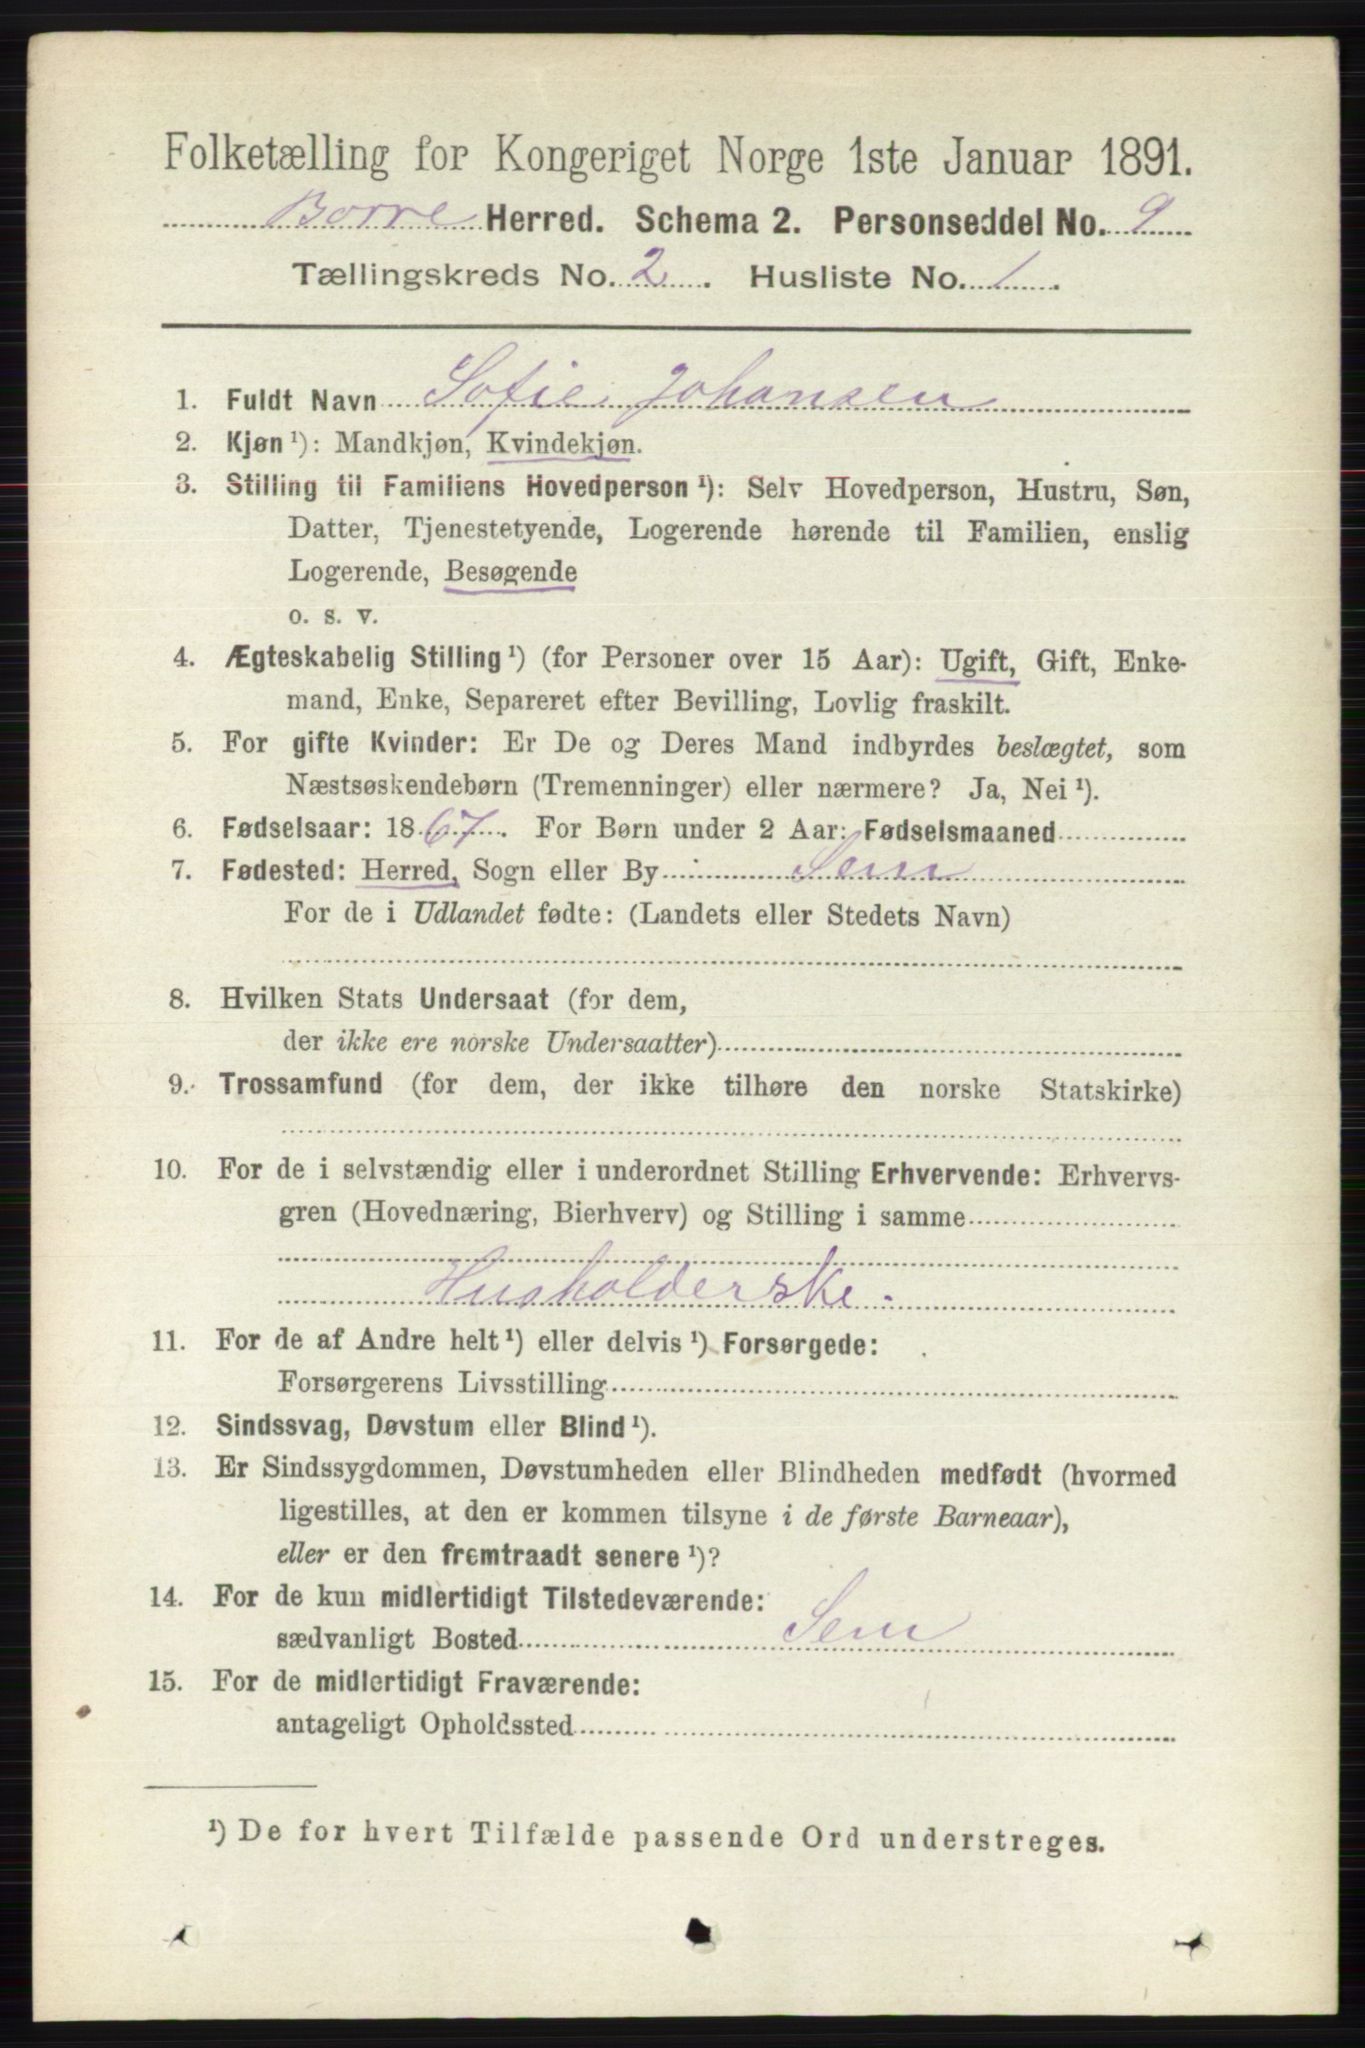 Folketælling for Kongeriget Norge 1ste Januar 1891.
Borre Herred. Schema 2. Personseddel No. 9
Tællingskreds No. 2. Husliste No. 1.
1. Fuldt Navn Sofie Johansen
2. Kjøn ¹): Mandkjøn, Kvindekjøn.
3. Stilling til Familiens Hovedperson ¹): Selv Hovedperson, Hustru, Søn,
Datter, Tjenestetyende, Logerende hørende til Familien, enslig
Logerende, Besøgende
o. s. v.
4. Ægteskabelig Stilling ¹) (for Personer over 15 Aar): Ugift, Gift, Enke-
mand, Enke, Separeret efter Bevilling, Lovlig fraskilt.
5. For gifte Kvinder: Er De og Deres Mand indbyrdes beslægtet, som
Næstsøskendebørn (Tremenninger) eller nærmere? Ja, Nei ¹).
6. Fødselsaar: 1867. For Børn under 2 Aar: Fødselsmaaned
7. Fødested: Herred, Sogn eller By Sem
For de i Udlandet fødte: (Landets eller Stedets Navn)
8. Hvilken Stats Undersaat (for dem,
der ikke ere norske Undersaatter)
9. Trossamfund (for dem, der ikke tilhøre den norske Statskirke)
10. For de i selvstændig eller i underordnet Stilling Erhvervende: Erhvervs-
gren (Hovednæring, Bierhverv) og Stilling i samme
Husholderske.
11. For de af Andre helt ¹) eller delvis ¹) Forsørgede:
Forsørgerens Livsstilling
12. Sindssvag, Døvstum eller Blind ¹).
13. Er Sindssygdommen, Døvstumheden eller Blindheden medfødt (hvormed
ligestilles, at den er kommen tilsyne i de første Barneaar),
eller er den fremtraadt senere ¹)?
14. For de kun midlertidigt Tilstedeværende:
sædvanligt Bosted Sem
15. For de midlertidigt Fraværende:
antageligt Opholdssted
¹) De for hvert Tilfælde passende Ord understreges.